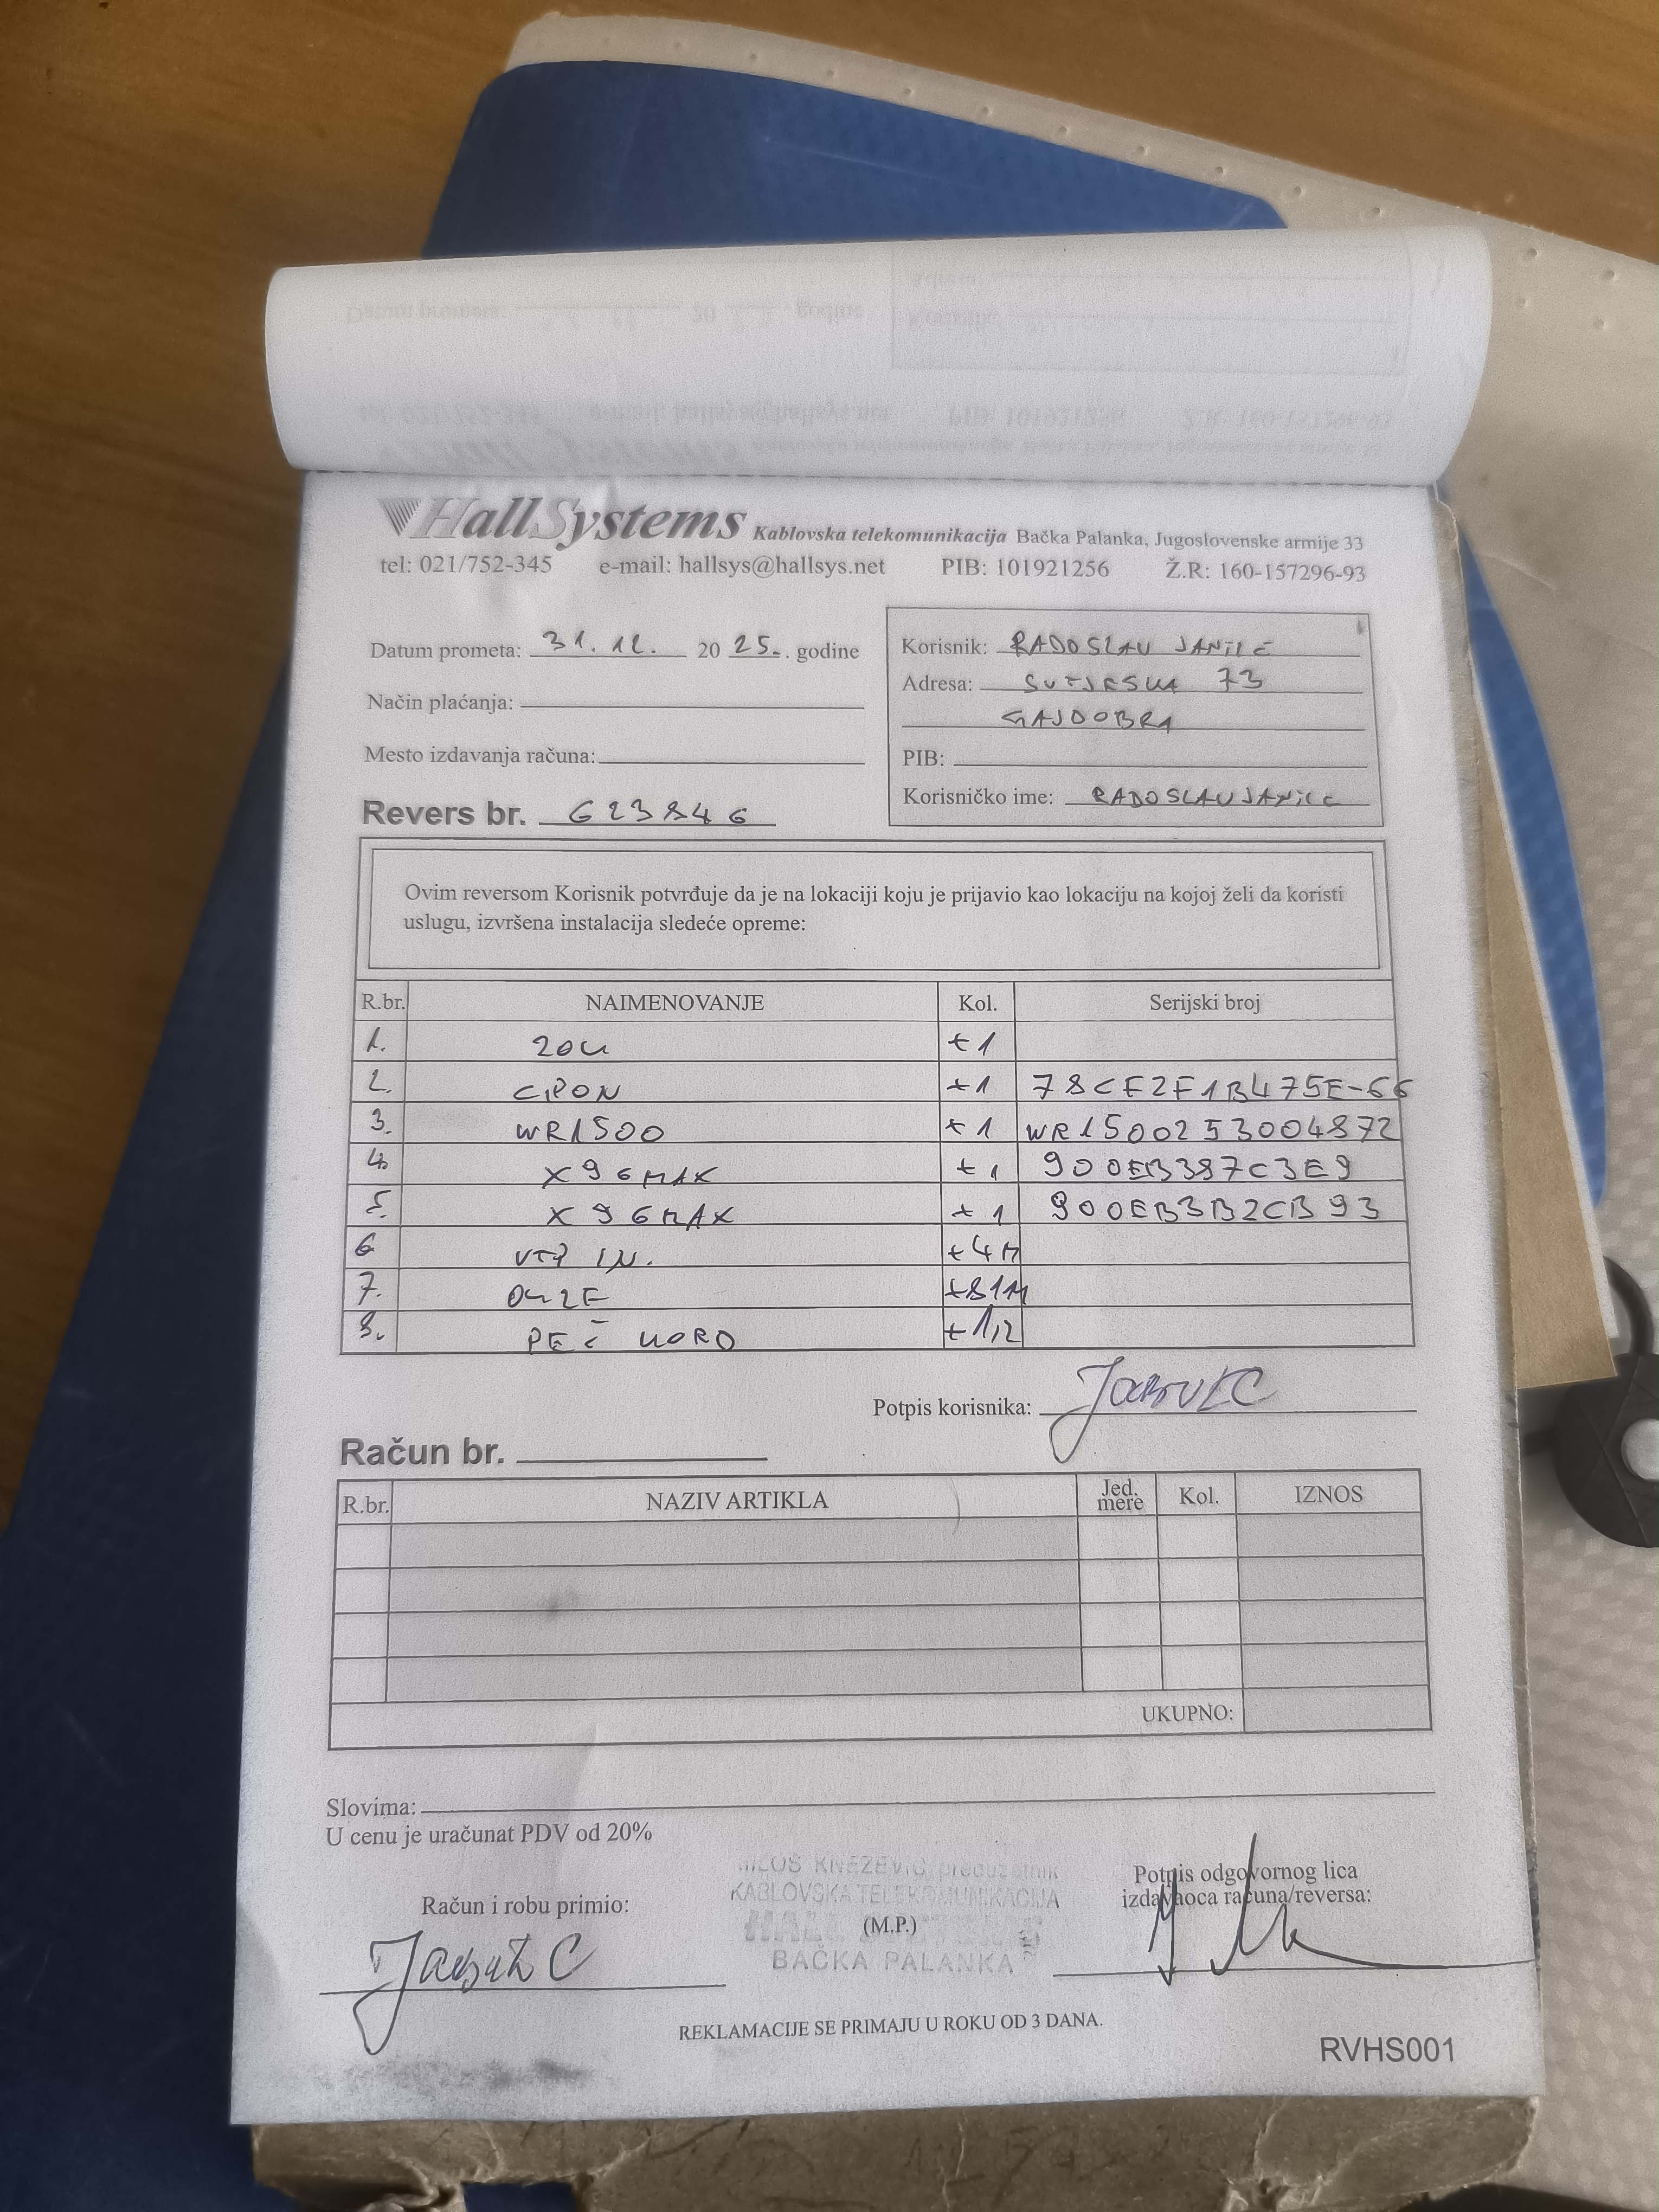 HallSystems Kablovska telekomunikacija Bačka Palanka, Jugoslovenske armije 33
tel: 021/752-345 e-mail: hallsys@hallsys.net PIB: 101921256 Ž.R: 160-157296-93
Datum prometa: 31. 12. 20 25. . godine
Način plaćanja:
Mesto izdavanja računa:
Revers br. 623846
Korisnik: RADOSLAV JANILE
Adresa: SUTJESKA 73
GAJDOBRA
PIB:
Korisničko ime: RADOSLAVJANILC
Ovim reversom Korisnik potvrđuje da je na lokaciji koju je prijavio kao lokaciju na kojoj želi da koristi
uslugu, izvršena instalacija sledeće opreme:
R.br. NAIMENOVANJE Kol. Serijski broj
1. ZOK +1
2. GPON +1 78CF2F1B475E-66
3. WR1500 +1 WR1500253004872
4. X96MAX +1 900EB387C3E9
5. X96MAX +1 900EB3B2CB93
6 UTP +4M
7. +81M
8. PEČ KORO +1/2
Potpis korisnika:
Račun br.
R.br. NAZIV ARTIKLA Jed. mere Kol. IZNOS
UKUPNO:
Slovima:
U cenu je uračunat PDV od 20%
Račun i robu primio:
MILOŠ KNEŽEVIĆ preduzetnik
KABLOVSKA TELEKOMUNIKACIJA
(M.P.)
BAČKA PALANKA
Potpis odgovornog lica
izdavaoca računa/reversa:
REKLAMACIJE SE PRIMAJU U ROKU OD 3 DANA.
RVHS001